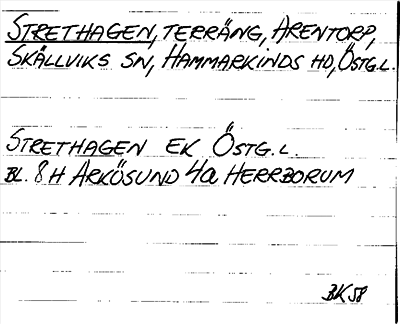 STRETHAGEN, TERRÄNG, ARENTORP,
SKÄLLVIKS SN, HAMMARKINDS HD, ÖSTG.L.
STRETHAGEN EK ÖSTG.L.
BL. 8H ARKÖSUND 4a HERRBORUM
BK 58